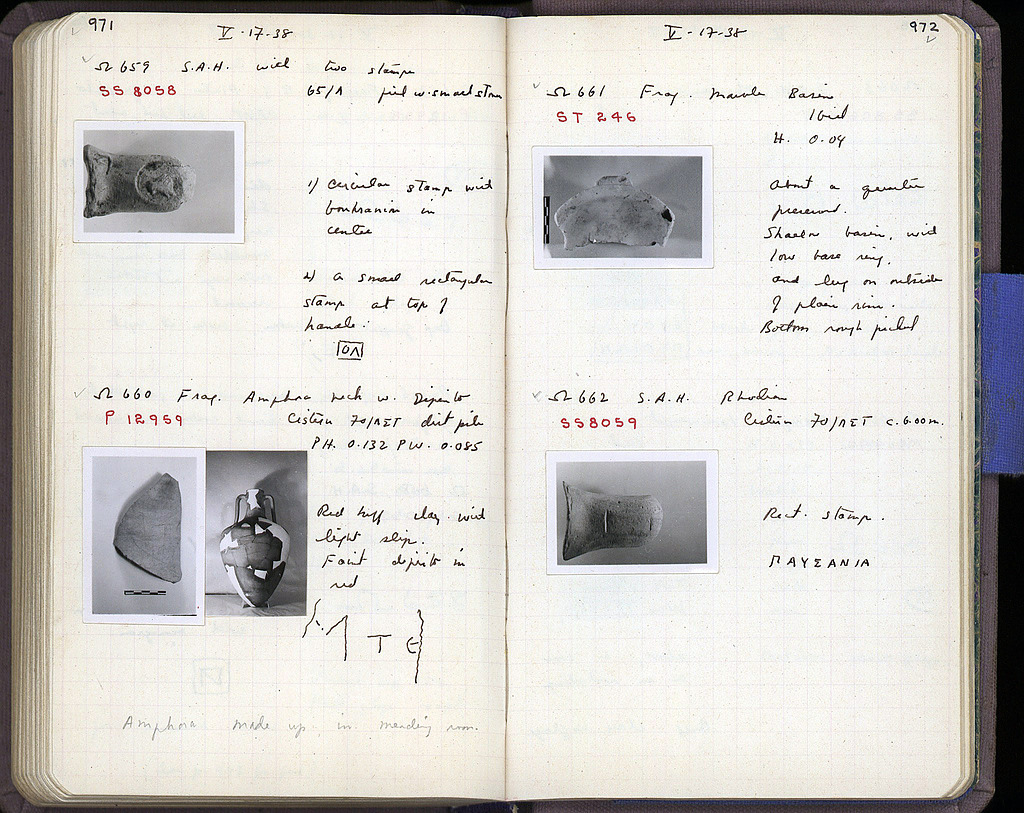 971
V-17-38
Ω 659 S.A.H. with two stamps
SS 8058
65/Λ fill w. small stones
1) Circular stamp with
boukranion in
centre
2) a small rectangular
stamp at top of
handle:
ΟΛ
Ω 660 Frag. Amphora neck w. Dipinto
P 12959
Cistern 70/ΛΕΤ dirt pile
PH. 0.132 PW. 0.085
Red buff clay with
light slip.
Faint dipinto in
red
Τ Ε
Amphora made up in mending room.
972
V-17-38
Ω 661 Frag. Marble Basin
ST 246
Ibid
H. 0.04
About a quarter
preserved.
Shallow basin, with
low base ring,
and lug on outside
of plain rim.
Bottom rough picked
Ω 662 S.A.H. Rhodian
SS 8059
Cistern 70/ΛΕΤ c. 6.00 m.
Rect. stamp.
ΠΑΥΣΑΝΙΑ